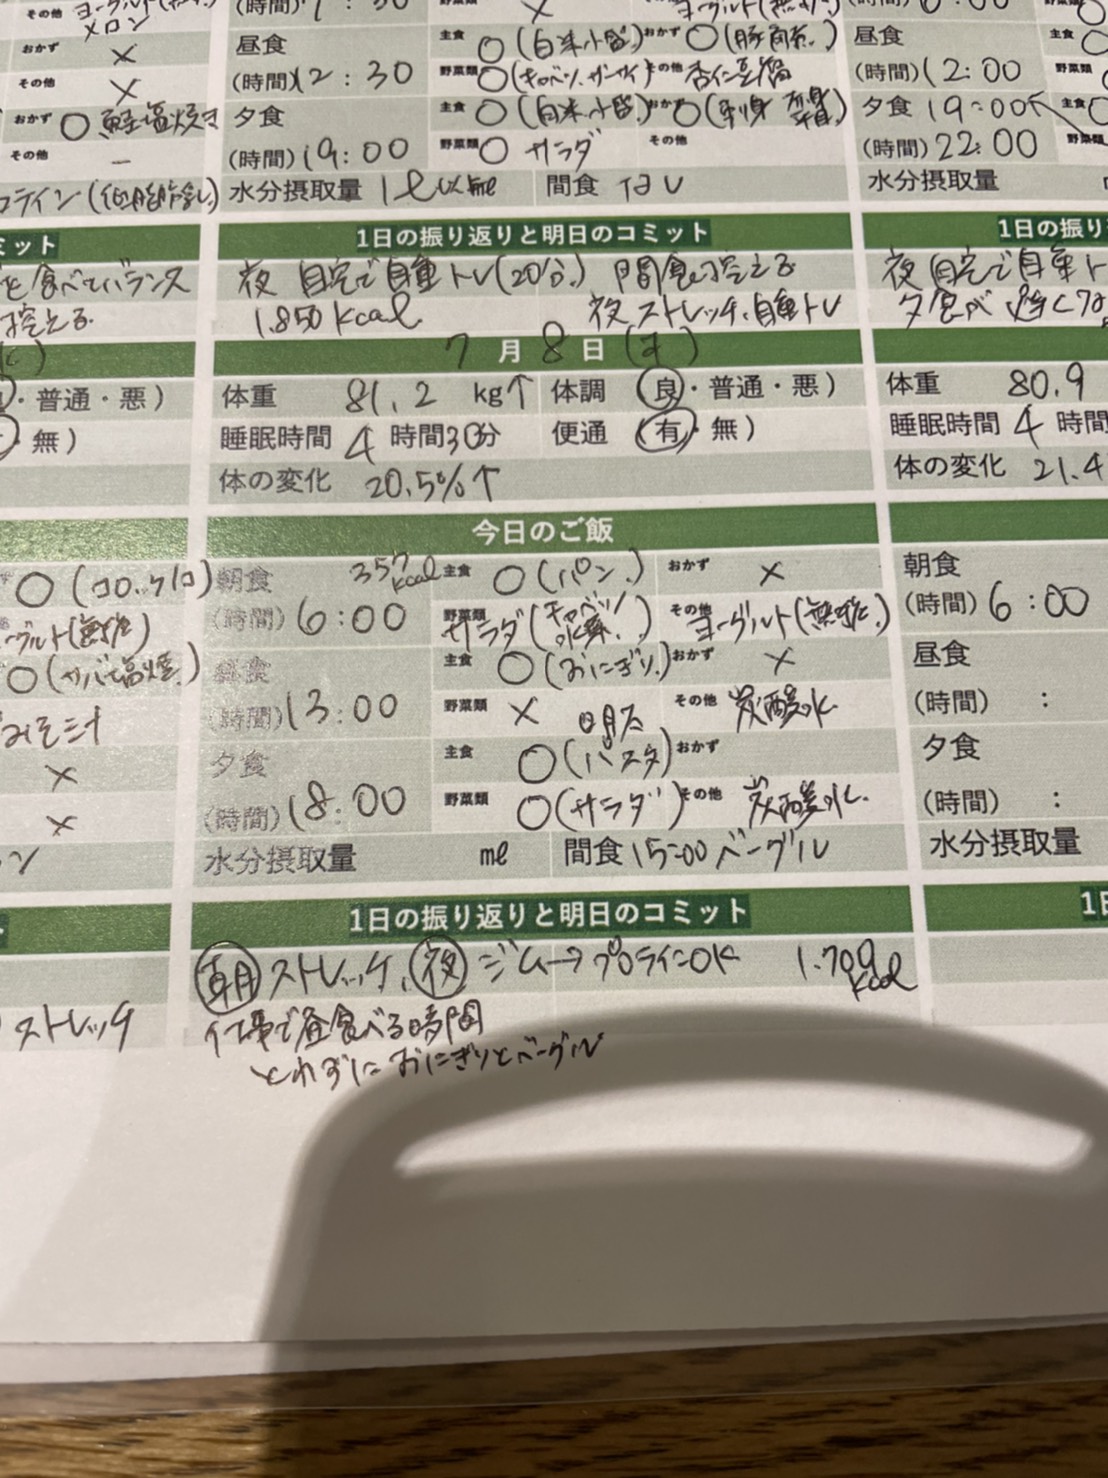 その他 ヨーグルト
メロン
おかず ×
その他 ×
おかず ○
その他 ー
ミット
を食べてバランス
控える
・普通・悪)
・無)
○(コロッケ1コ)
ーグルト(無糖)
○(サバ塩焼)
みそ汁
×
×
ストレッチ
(時間)
野菜類 × ヨーグルト
昼食 主食 ○(白米小盛) おかず ○(豚肉
(時間)12:30 野菜類 ○(キャベツ その他 杏仁豆腐
夕食 主食 ○(白米小盛) おかず ○(刺身
(時間)19:00 野菜類 ○ サラダ その他
水分摂取量 1ℓ以上 mℓ 間食 なし
1日の振り返りと明日のコミット
夜 自宅で自重トレ(20分) 間食は控える
1,850kcal 夜 ストレッチ、自重トレ
7月8日(
体重 81.2 kg↑ 体調 (良・普通・悪)
睡眠時間 4時間30分 便通 (有・無)
体の変化 20.5%↑
今日のご飯
朝食 357kcal 主食 ○(パン) おかず ×
(時間)6:00 野菜類 サラダ(キャベツ/水菜) その他 ヨーグルト(無糖)
昼食 主食 ○(おにぎり) おかず ×
(時間)13:00 野菜類 × 明太 その他 炭酸水
夕食 主食 ○(パスタ) おかず
(時間)18:00 野菜類 ○(サラダ) その他 炭酸水
水分摂取量 mℓ 間食 15:00 ベーグル
1日の振り返りと明日のコミット
朝 ストレッチ、夜 ジム→プロテインOK 1.709kcal
仕事で昼食べる時間
とれずに おにぎりとベーグル
(時間)
昼食 主食 ○
(時間)12:00
夕食 19:00 主食
(時間)22:00 野菜類
水分摂取量
1日の振り
夜 自宅で自重ト
夕食が遅くな
体重 80.9
睡眠時間 4時間
体の変化 21.4
朝食
(時間)6:00
昼食
(時間) :
夕食
(時間) :
水分摂取量
1日